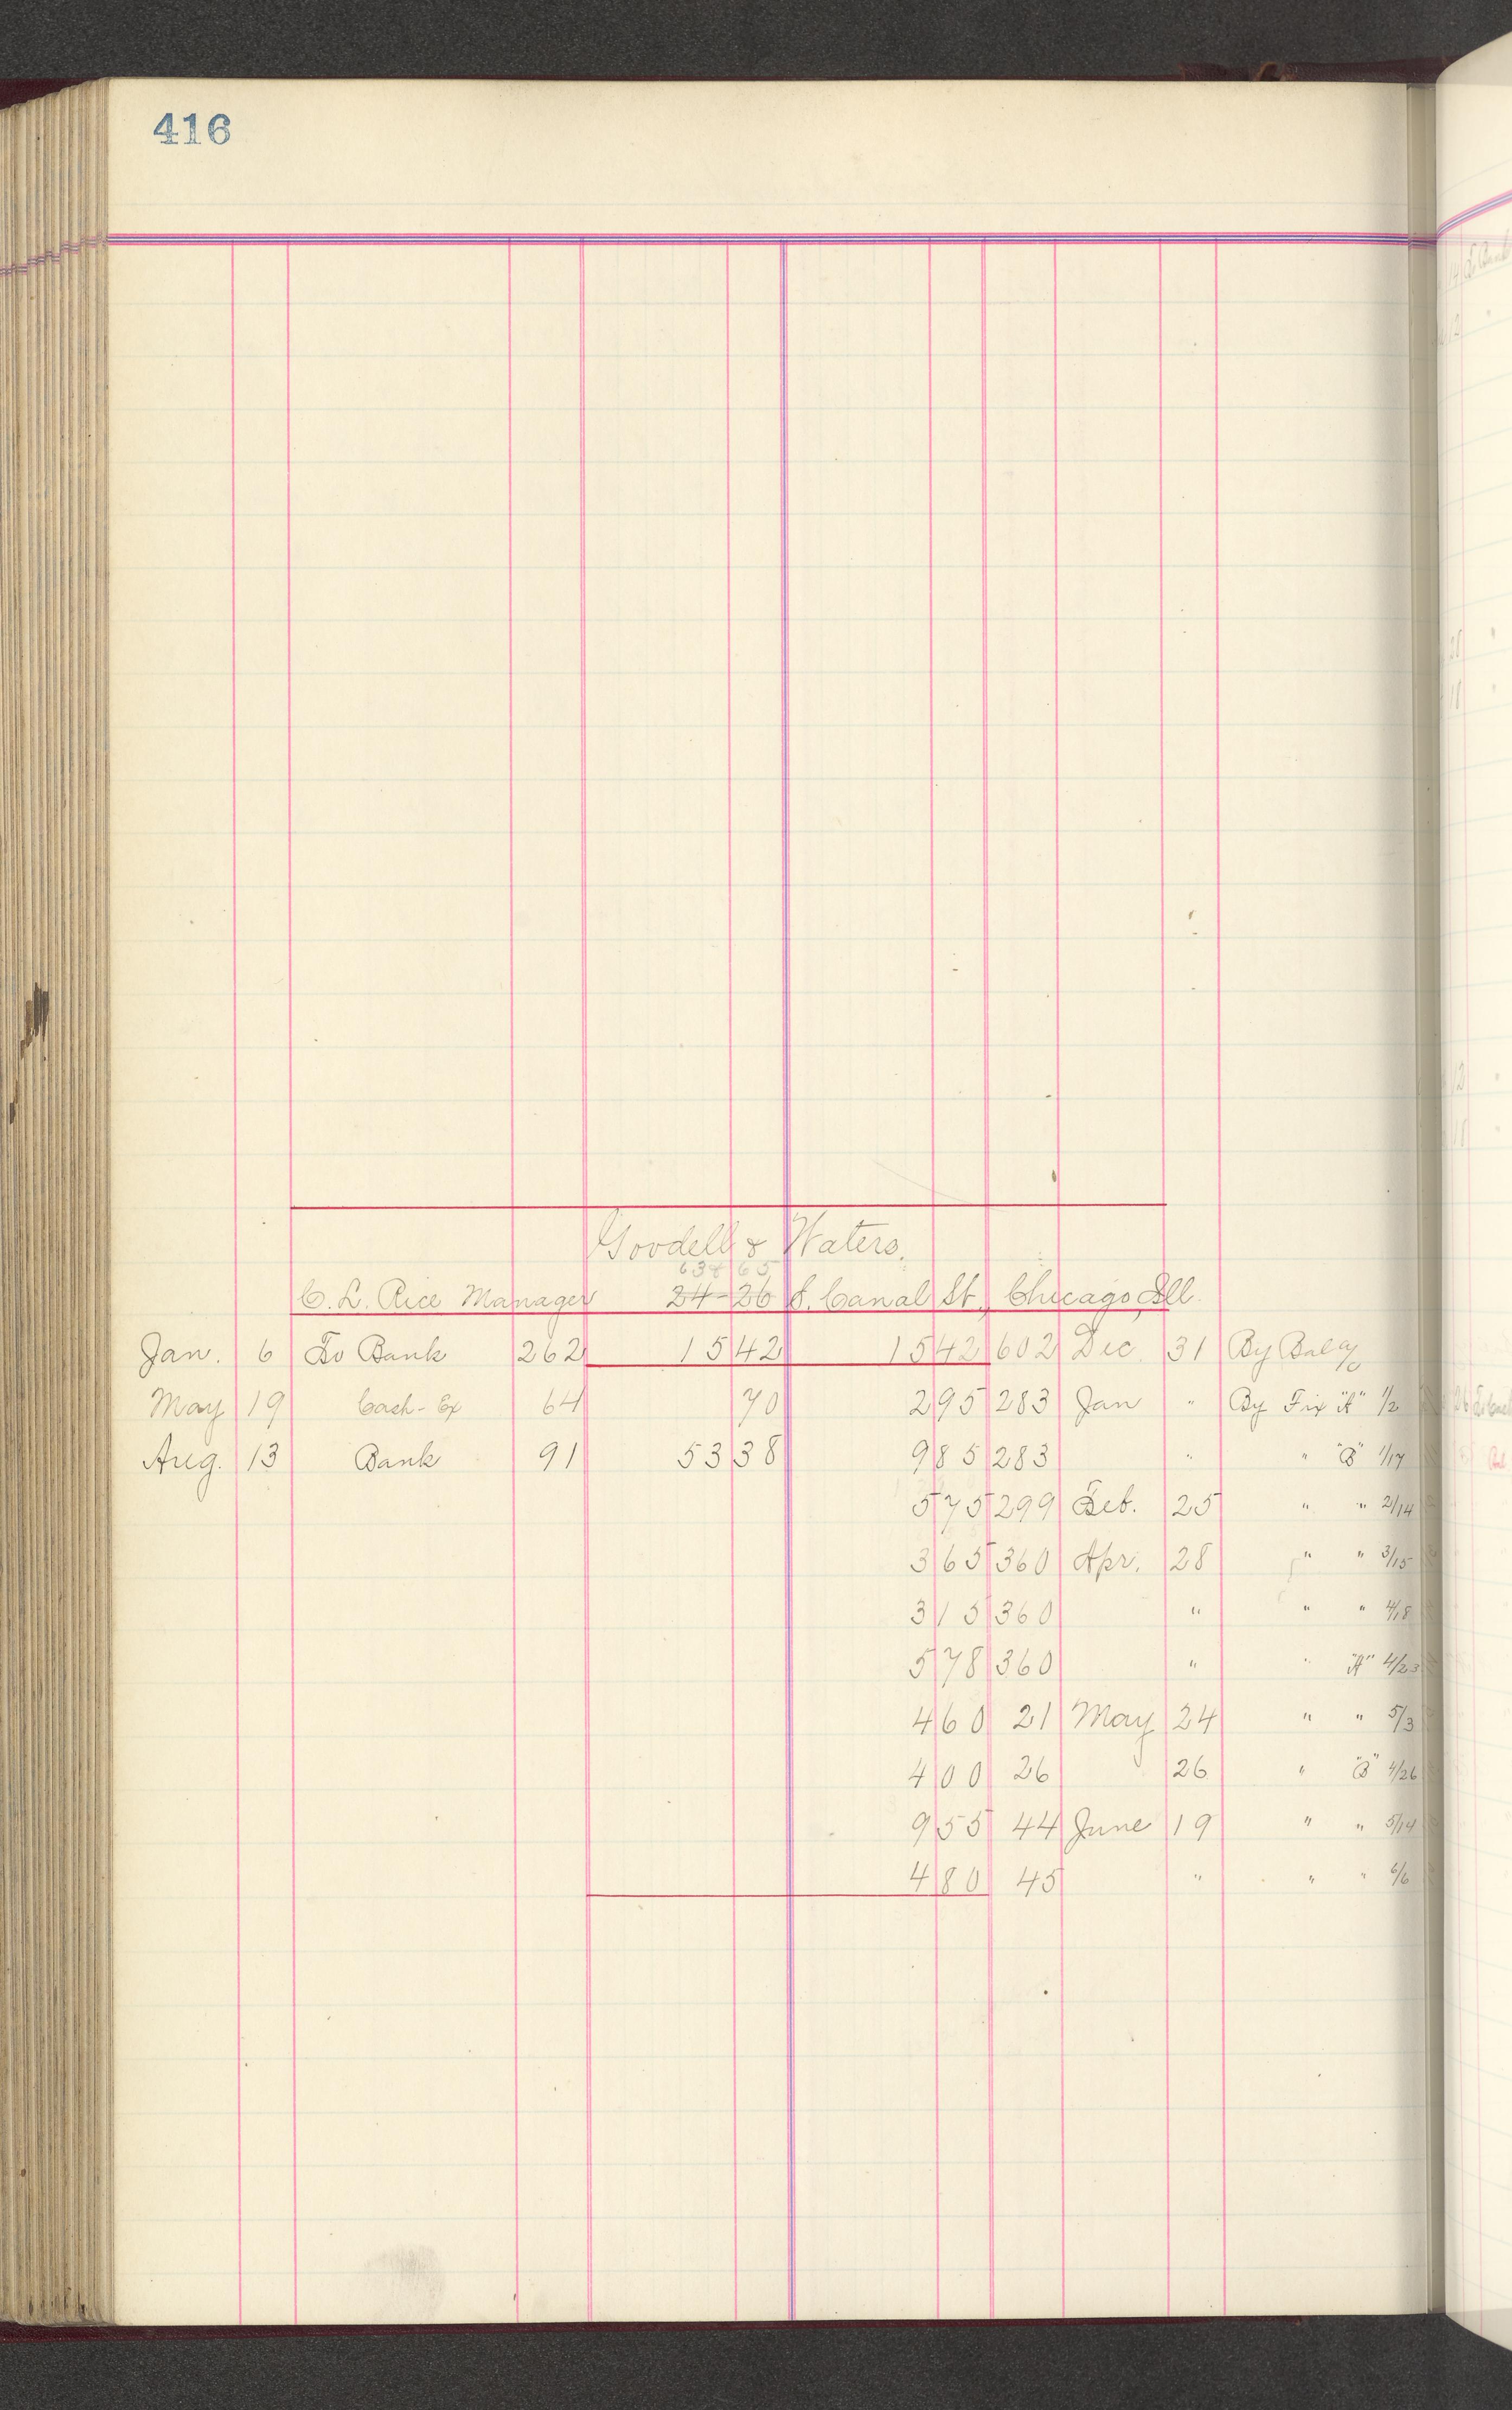 416
Goodell & Waters.
63 & 65
C. L. Rice Manager 24-26 S. Canal St., Chicago, Ill.
Jan. 6 To Bank 262 15 42 15 42 602 Dec. 31 By Bal a/c
May 19 Cash-Ex 64 70 2 95 283 Jan " By Fix "A" 1/2
Aug. 13 Bank 91 53 38 9 85 283 " " "B" 1/17
5 75 299 Feb. 25 " " 2/14
3 65 360 Apr. 28 " " 3/15
3 15 360 " " " 4/18
5 78 360 " " "A" 4/23
4 60 21 May 24 " " 5/3
4 00 26 26 " "B" 4/26
9 55 44 June 19 " " 5/14
4 80 45 " " " 6/6